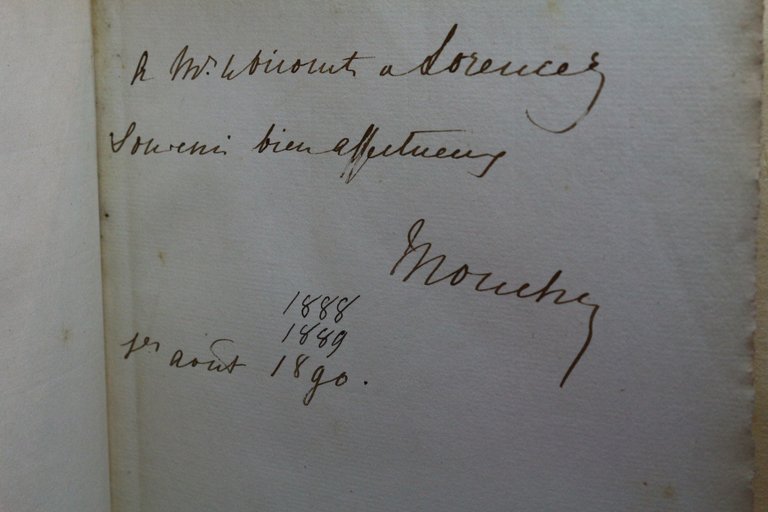 A Mr. le Vicomte de Lorencez
Souvenir bien affectueux
Mouchy
1888
1889
1er août 1890.